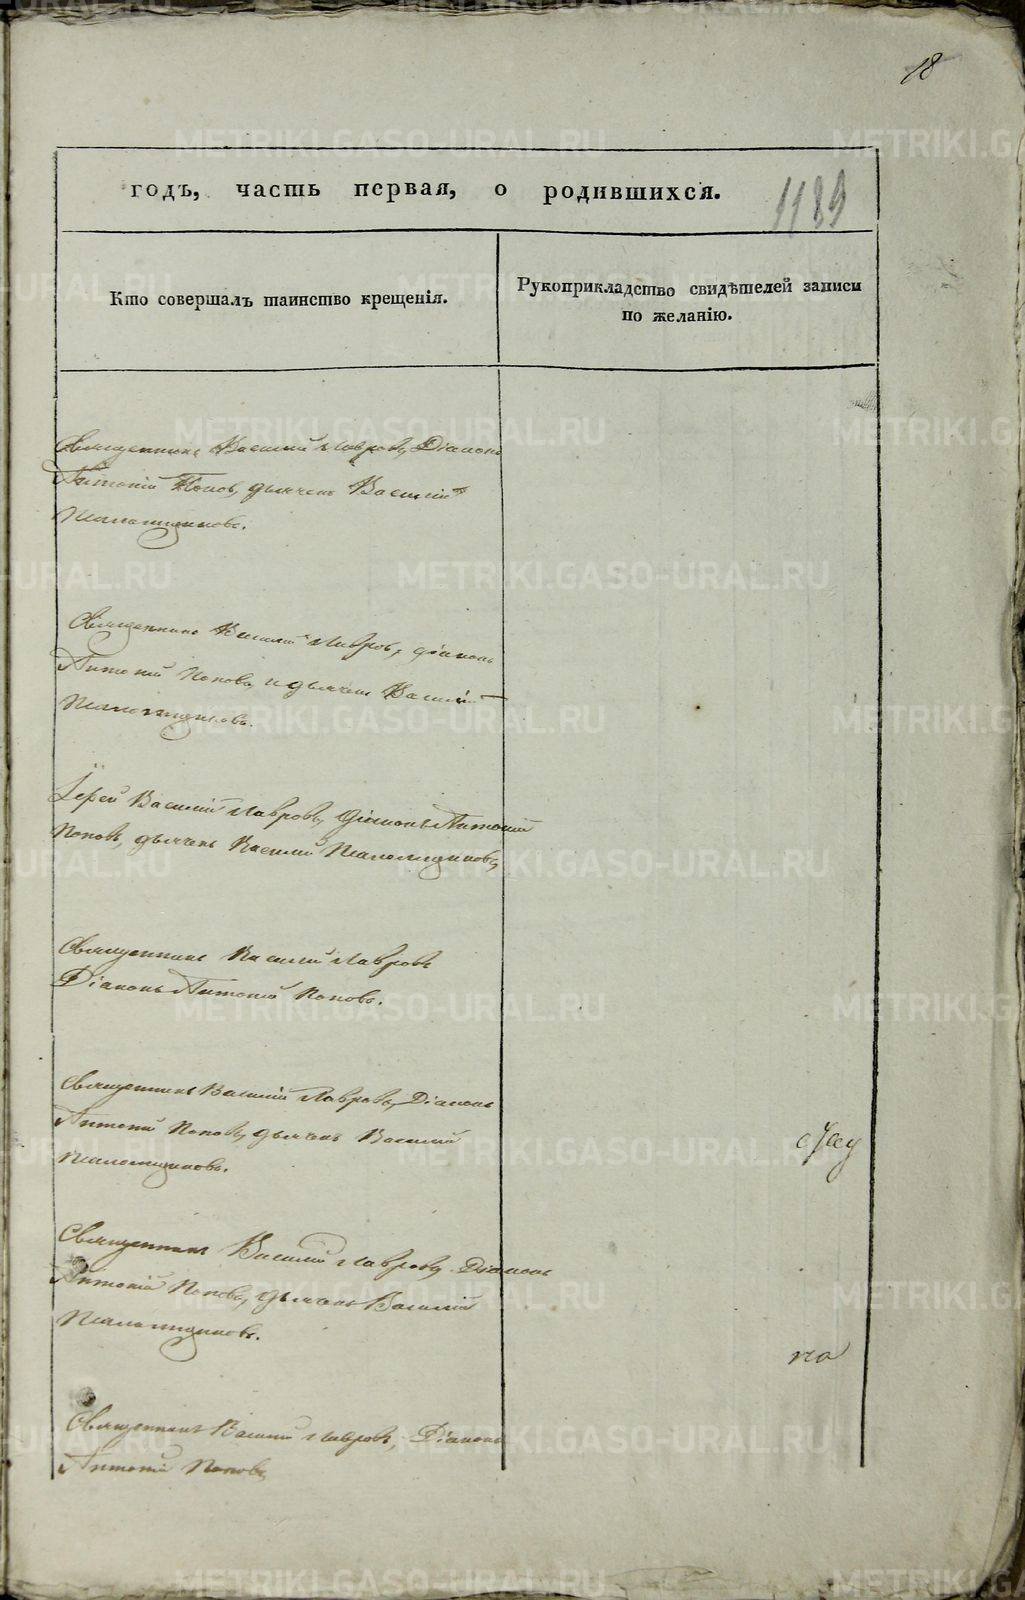 18
годъ, часть первая, о родившихся.
1189
Кто совершалъ таинство крещенія.
Рукоприкладство свидѣтелей записи
по желанію.
Священникъ Василий Лавровъ, Діаконъ
Антоній Поповъ, дьячекъ Василій
Священникъ Василий Лавровъ, діаконъ
Антоній Поповъ и дьячекъ Василій
Іерей Василий Лавровъ, Діаконъ Антоній
Поповъ, дьячекъ Василий
Священникъ Василий Лавровъ
Діаконъ Антоній Поповъ.
Священникъ Василій Лавровъ, Діаконъ
Антоній Поповъ, дьячекъ Василий
Священникъ Василий Лавровъ, Діаконъ
Антоній Поповъ, дьячекъ Василій
на
Священникъ Василий Лавровъ, Діаконъ
Антоній Поповъ
METRIKI.GASO-URAL.RU